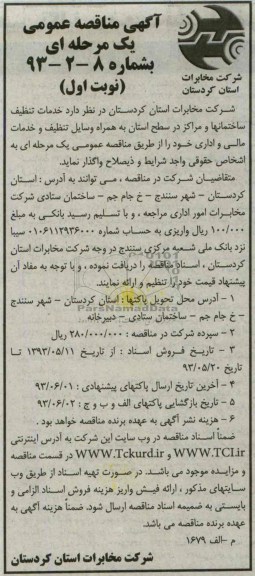 آگهی مناقصه عمومی
یک مرحله ای
بشماره ۸-۲-۹۳
(نوبت اول)
شرکت مخابرات
استان کردستان
شرکت مخابرات استان کردستان در نظر دارد خدمات تنظیف
ساختمانها و مراکز در سطح استان به همراه وسایل تنظیف و خدمات
مالی و اداری خود را از طریق مناقصه عمومی یک مرحله ای به
اشخاص حقوقی واجد شرایط و ذیصلاح واگذار نماید.
متقاضیان شرکت در مناقصه ، می توانند به آدرس : استان
کردستان – شهر سنندج – خ جام جم – ساختمان ستادی شرکت
مخابرات امور اداری مراجعه ، و با تسلیم رسید بانکی به مبلغ
۱۰۰/۰۰۰ ریال واریزی به حساب شماره ۰۱۰۶۱۱۲۹۳۶۰۰۰ سیبا
نزد بانک ملی شعبه مرکزی سنندج در وجه شرکت مخابرات استان
کردستان ، اسناد مناقصه را دریافت نموده ، و با توجه به مفاد آن
پیشنهاد قیمت خود را تنظیم و ارائه نمایند.
۱ – آدرس محل تحویل پاکتها : استان کردستان – شهر سنندج
– خ جام جم – ساختمان ستادی – دبیرخانه
۲ – سپرده شرکت در مناقصه : ۲۸۰/۰۰۰/۰۰۰ ریال
۳ – تاریخ فروش اسناد : از تاریخ ۱۳۹۳/۰۵/۱۱ تا
تاریخ ۹۳/۰۵/۲۰
۴ – آخرین تاریخ ارسال پاکتهای پیشنهادی : ۹۳/۰۶/۰۱
۵ – تاریخ بازگشایی پاکتهای الف و ب و ج : ۹۳/۰۶/۰۲
۶ – هزینه نشر آگهی به عهده برنده مناقصه خواهد بود .
ضمناً اسناد مناقصه در وب سایت این شرکت به آدرس اینترنتی
WWW.TCI.ir و WWW.Tckurd.ir در قسمت مناقصه
و مزایده موجود می باشد. در صورت تهیه اسناد از طریق وب
سایتهای مذکور ، ارائه فیش واریز هزینه فروش اسناد الزامی و
بایستی به ضمیمه اسناد مناقصه ارسال شود. ضمناً هزینه آگهی به
عهده برنده مناقصه می باشد.
م –الف ۱۶۷۹
شرکت مخابرات استان کردستان
ParsNamadData